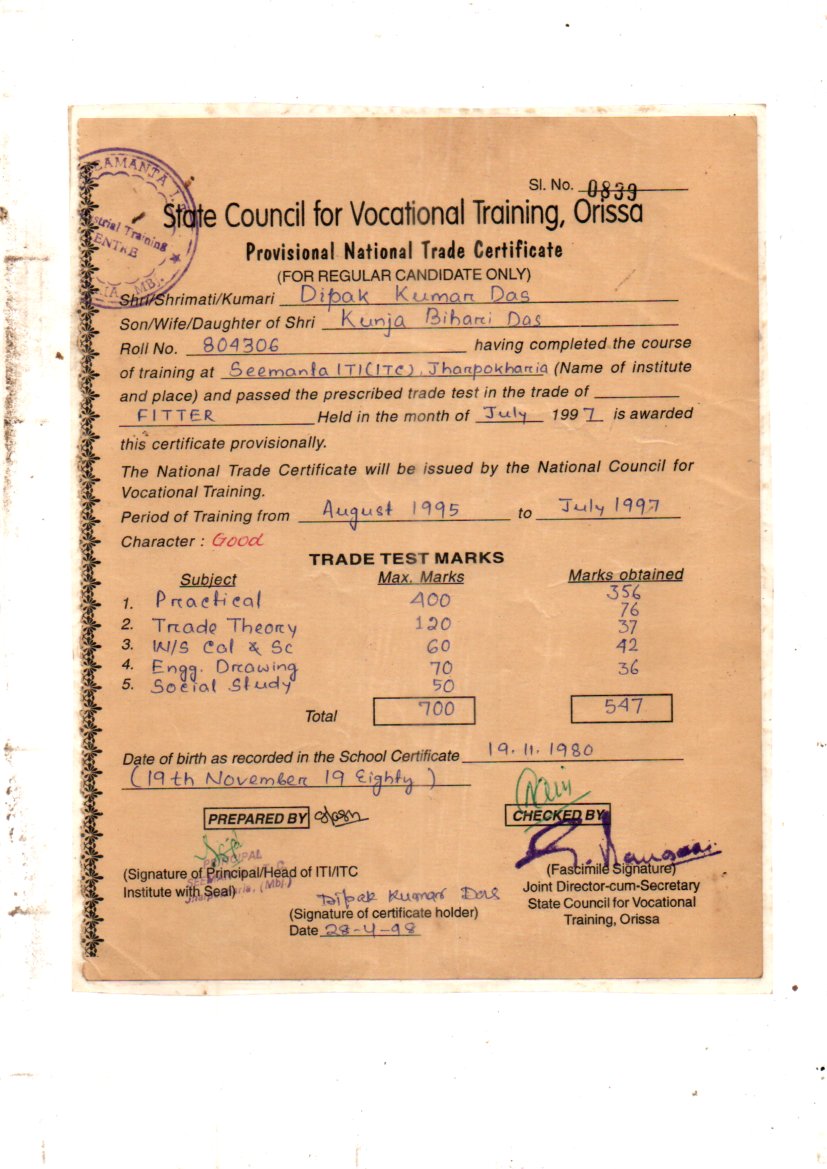 SEAMANTA I
Industrial Training
CENTRE
MBJ.
Sl. No. 0839
State Council for Vocational Training, Orissa
Provisional National Trade Certificate
(FOR REGULAR CANDIDATE ONLY)
Shri/Shrimati/Kumari Dipak Kumar Das
Son/Wife/Daughter of Shri Kunja Bihari Das
Roll No. 804306 having completed the course
of training at Seemanta ITI(ITC), Jharpokharia (Name of institute
and place) and passed the prescribed trade test in the trade of
FITTER Held in the month of July 1997 is awarded
this certificate provisionally.
The National Trade Certificate will be issued by the National Council for
Vocational Training.
Period of Training from August 1995 to July 1997
Character : Good
TRADE TEST MARKS
Subject Max. Marks Marks obtained
1. Practical 400 356
2. Trade Theory 120 76
3. W/S Cal & Sc 60 37
4. Engg. Drawing 70 42
5. Social Study 50 36
Total 700 547
Date of birth as recorded in the School Certificate 19.11.1980
(19th November 19 Eighty)
PREPARED BY CHECKED BY
PRINCIPAL
(Signature of Principal/Head of ITI/ITC
Institute with Seal)
(Fascimile Signature)
Joint Director-cum-Secretary
State Council for Vocational
Training, Orissa
Dipak Kumar Das
(Signature of certificate holder)
Date 28-4-98